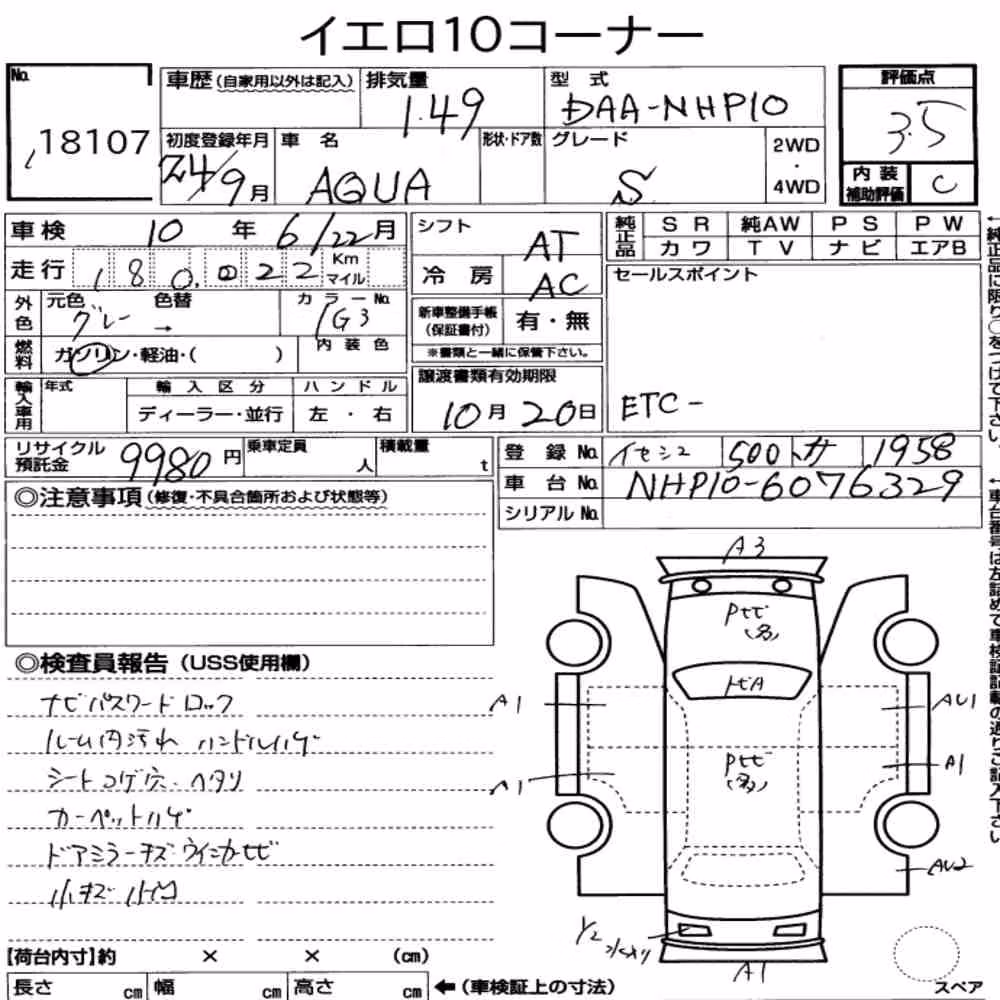 イエロ10コーナー
No. 18107
車歴 (自家用以外は記入) 排気量 1.49 型式 DAA-NHP10
初度登録年月 24/9月 車名 AQUA 形状・ドア数 グレード S 2WD・4WD
評価点 3.5
内装補助評価 C
車検 10年 6/22月
走行 180,022 Km マイル
外色 元色 グレー 色替 → カラーNo. 1G3
燃料 ガソリン・軽油・( ) 内装色
輸入車用 年式 輸入区分 ディーラー・並行 ハンドル 左・右
シフト AT
冷房 AC
新車整備手帳(保証書付) 有・無
※書類と一緒に保管下さい。
譲渡書類有効期限
10月20日
純正品 SR 純AW PS PW
カワ TV ナビ エアB
セールスポイント
ETC-
←純正品に限り○をつけて下さい。
リサイクル預託金 9980円 乗車定員 人 積載量 t
登録No. イセシマ 500 サ 1958
車台No. NHP10-6076329
シリアルNo.
◎注意事項(修復・不具合箇所および状態等)
◎検査員報告(USS使用欄)
ナビパスワードロック
ルーム内汚れ ハンドルハゲ
シートコゲ穴・ヘタリ
カーペットハゲ
ドアミラーキズ・ウインカーヒビ
小キズ 小凹
A3
Pセヒ
(多)
トビA
A1
AU1
Pセヒ
(多)
A1
A1
AU2
Y2
A1
スペア
【荷台内寸】約 × × (cm)
長さ cm 幅 cm 高さ cm ←(車検証上の寸法)